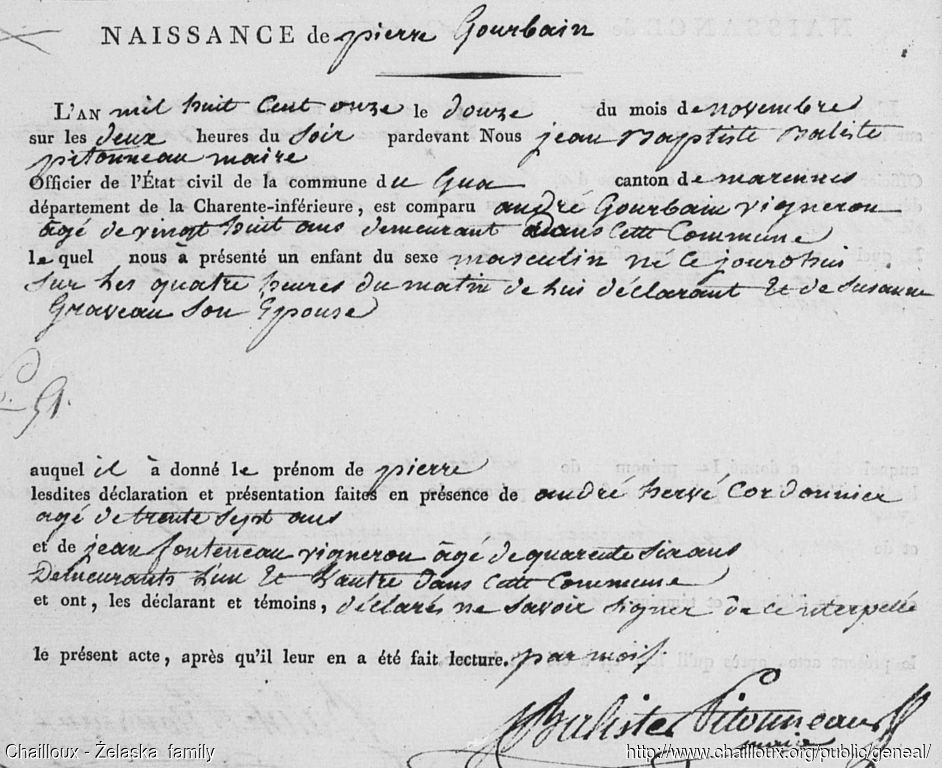 NAISSANCE de pierre Gourbain
L'AN mil huit Cent onze le douze du mois de novembre
sur les deux heures du Soir pardevant Nous jean Baptiste Baliste
pitonneau maire
Officier de l'État civil de la commune du Gua canton de marennes
département de la Charente-inférieure, est comparu andré Gourbain vigneron
âgé de vingt huit ans demeurant dans Cette Commune
lequel nous à présenté un enfant du sexe masculin né ce jourdhui
Sur les quatre heures du matin de lui déclarant Et de Susanne
Graveau Son Epouse
51.
auquel il à donné le prénom de pierre
lesdites déclaration et présentation faites en présence de andré hervé Cordonnier
agé de trente Sept ans
et de jean fonteneau vigneron âgé de quarente Six ans
Demeurants L'un Et L'autre Dans Cette Commune
et ont, les déclarant et témoins, déclarés ne Savoir Signer de ce interpellé
le présent acte, après qu'il leur en a été fait lecture. par moi
Baliste Pitonneau
maire
Chailloux - Želaska family http://www.chailloux.org/public/geneal/